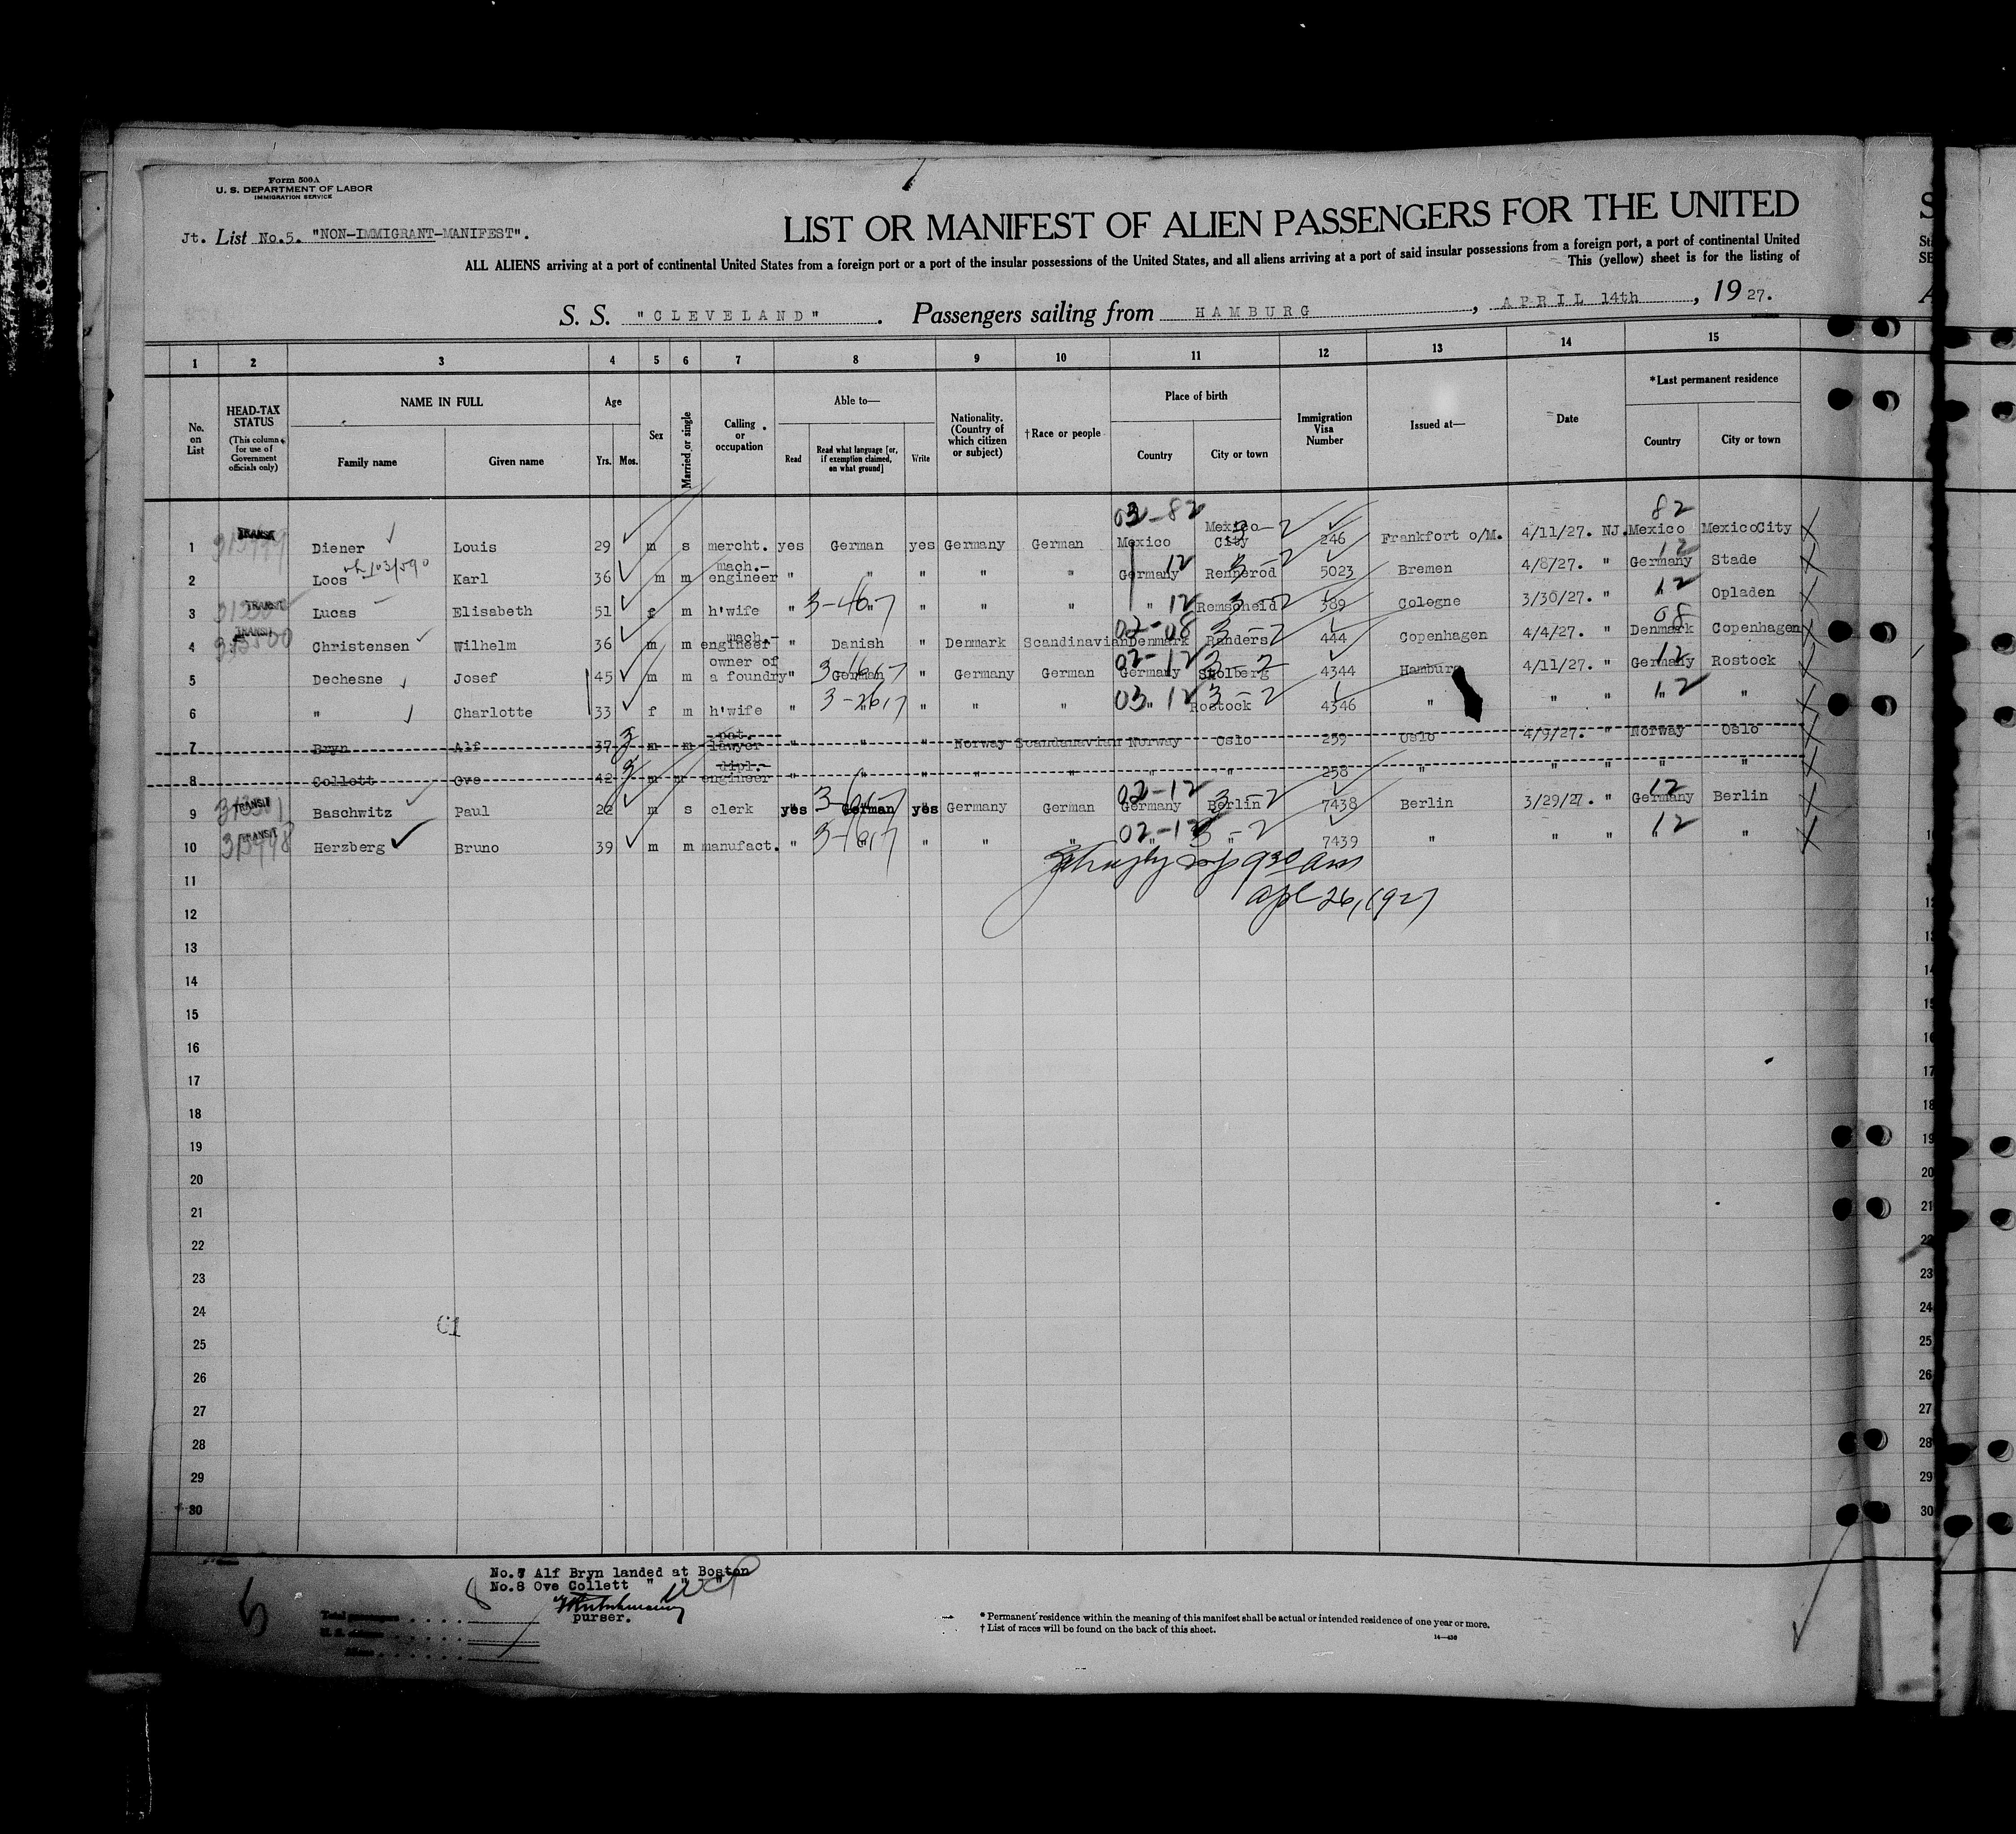 Form 500A
U. S. DEPARTMENT OF LABOR
IMMIGRATION SERVICE
Jt. List No.5. "NON-IMMIGRANT-MANIFEST".
LIST OR MANIFEST OF ALIEN PASSENGERS FOR THE UNITED
ALL ALIENS arriving at a port of continental United States from a foreign port or a port of the insular possessions of the United States, and all aliens arriving at a port of said insular possessions from a foreign port, a port of continental United
This (yellow) sheet is for the listing of
S. S. "CLEVELAND". Passengers sailing from HAMBURG, APRIL 14th, 1927.
1 2 3 4 5 6 7 8 9 10 11 12 13 14 15
No. on List
HEAD-TAX STATUS (This column for use of Government officials only)
NAME IN FULL Family name Given name
Age Yrs. Mos.
Sex
Married or single
Calling or occupation
Able to— Read Read what language [or, if exemption claimed, on what ground] Write
Nationality. (Country of which citizen or subject)
†Race or people
Place of birth Country City or town
Immigration Visa Number
Issued at—
Date
*Last permanent residence Country City or town
03-82 82
1 TRANSIT Diener Louis 29 m s mercht. yes German yes Germany German Mexico Mexico City 246 Frankfort o/M. 4/11/27. NJ. Mexico MexicoCity
2 Loos Karl 36 m m mach.-engineer " " " " " Germany 12 Rennerod 5023 Bremen 4/8/27. " Germany 12 Stade
3 TRANSIT Lucas Elisabeth 51 f m h'wife " " " " " " 12 Remscheid 389 Cologne 3/30/27. " " 12 Opladen
4 TRANSIT Christensen Wilhelm 36 m m mach.-engineer " Danish " Denmark Scandinavian Denmark 02-08 Randers 3-2 444 Copenhagen 4/4/27. " Denmark 08 Copenhagen
5 Dechesne Josef 45 m m owner of a foundry " German " Germany German Germany 02-12 Stolberg 3-2 4344 Hamburg 4/11/27. " Germany 12 Rostock
6 " Charlotte 33 f m h'wife " " " " " " 03 12 Rostock 3-2 4346 " " " " 12 "
7 Bryn Alf 37 m m pat. lawyer " " " Norway Scandanavian Norway Oslo 259 Oslo 4/9/27. " Norway Oslo
8 Collett Ove 42 m m dipl.-engineer " " " " " " " 258 " " " " "
9 TRANSIT Baschwitz Paul 22 m s clerk yes German yes Germany German Germany 02-12 Berlin 3-2 7438 Berlin 3/29/27. " Germany 12 Berlin
10 TRANSIT Herzberg Bruno 39 m m manufact. " " " " " " 02-12 " 3-2 7439 " " " " 12 "
11 930 am
12 Apl 26, 1927
13
14
15
16
17
18
19
20
21
22
23
24
25
26
27
28
29
30
No.7 Alf Bryn landed at Boston
No.8 Ove Collett " " "
purser.
5
8
Total passengers
* Permanent residence within the meaning of this manifest shall be actual or intended residence of one year or more.
† List of races will be found on the back of this sheet.